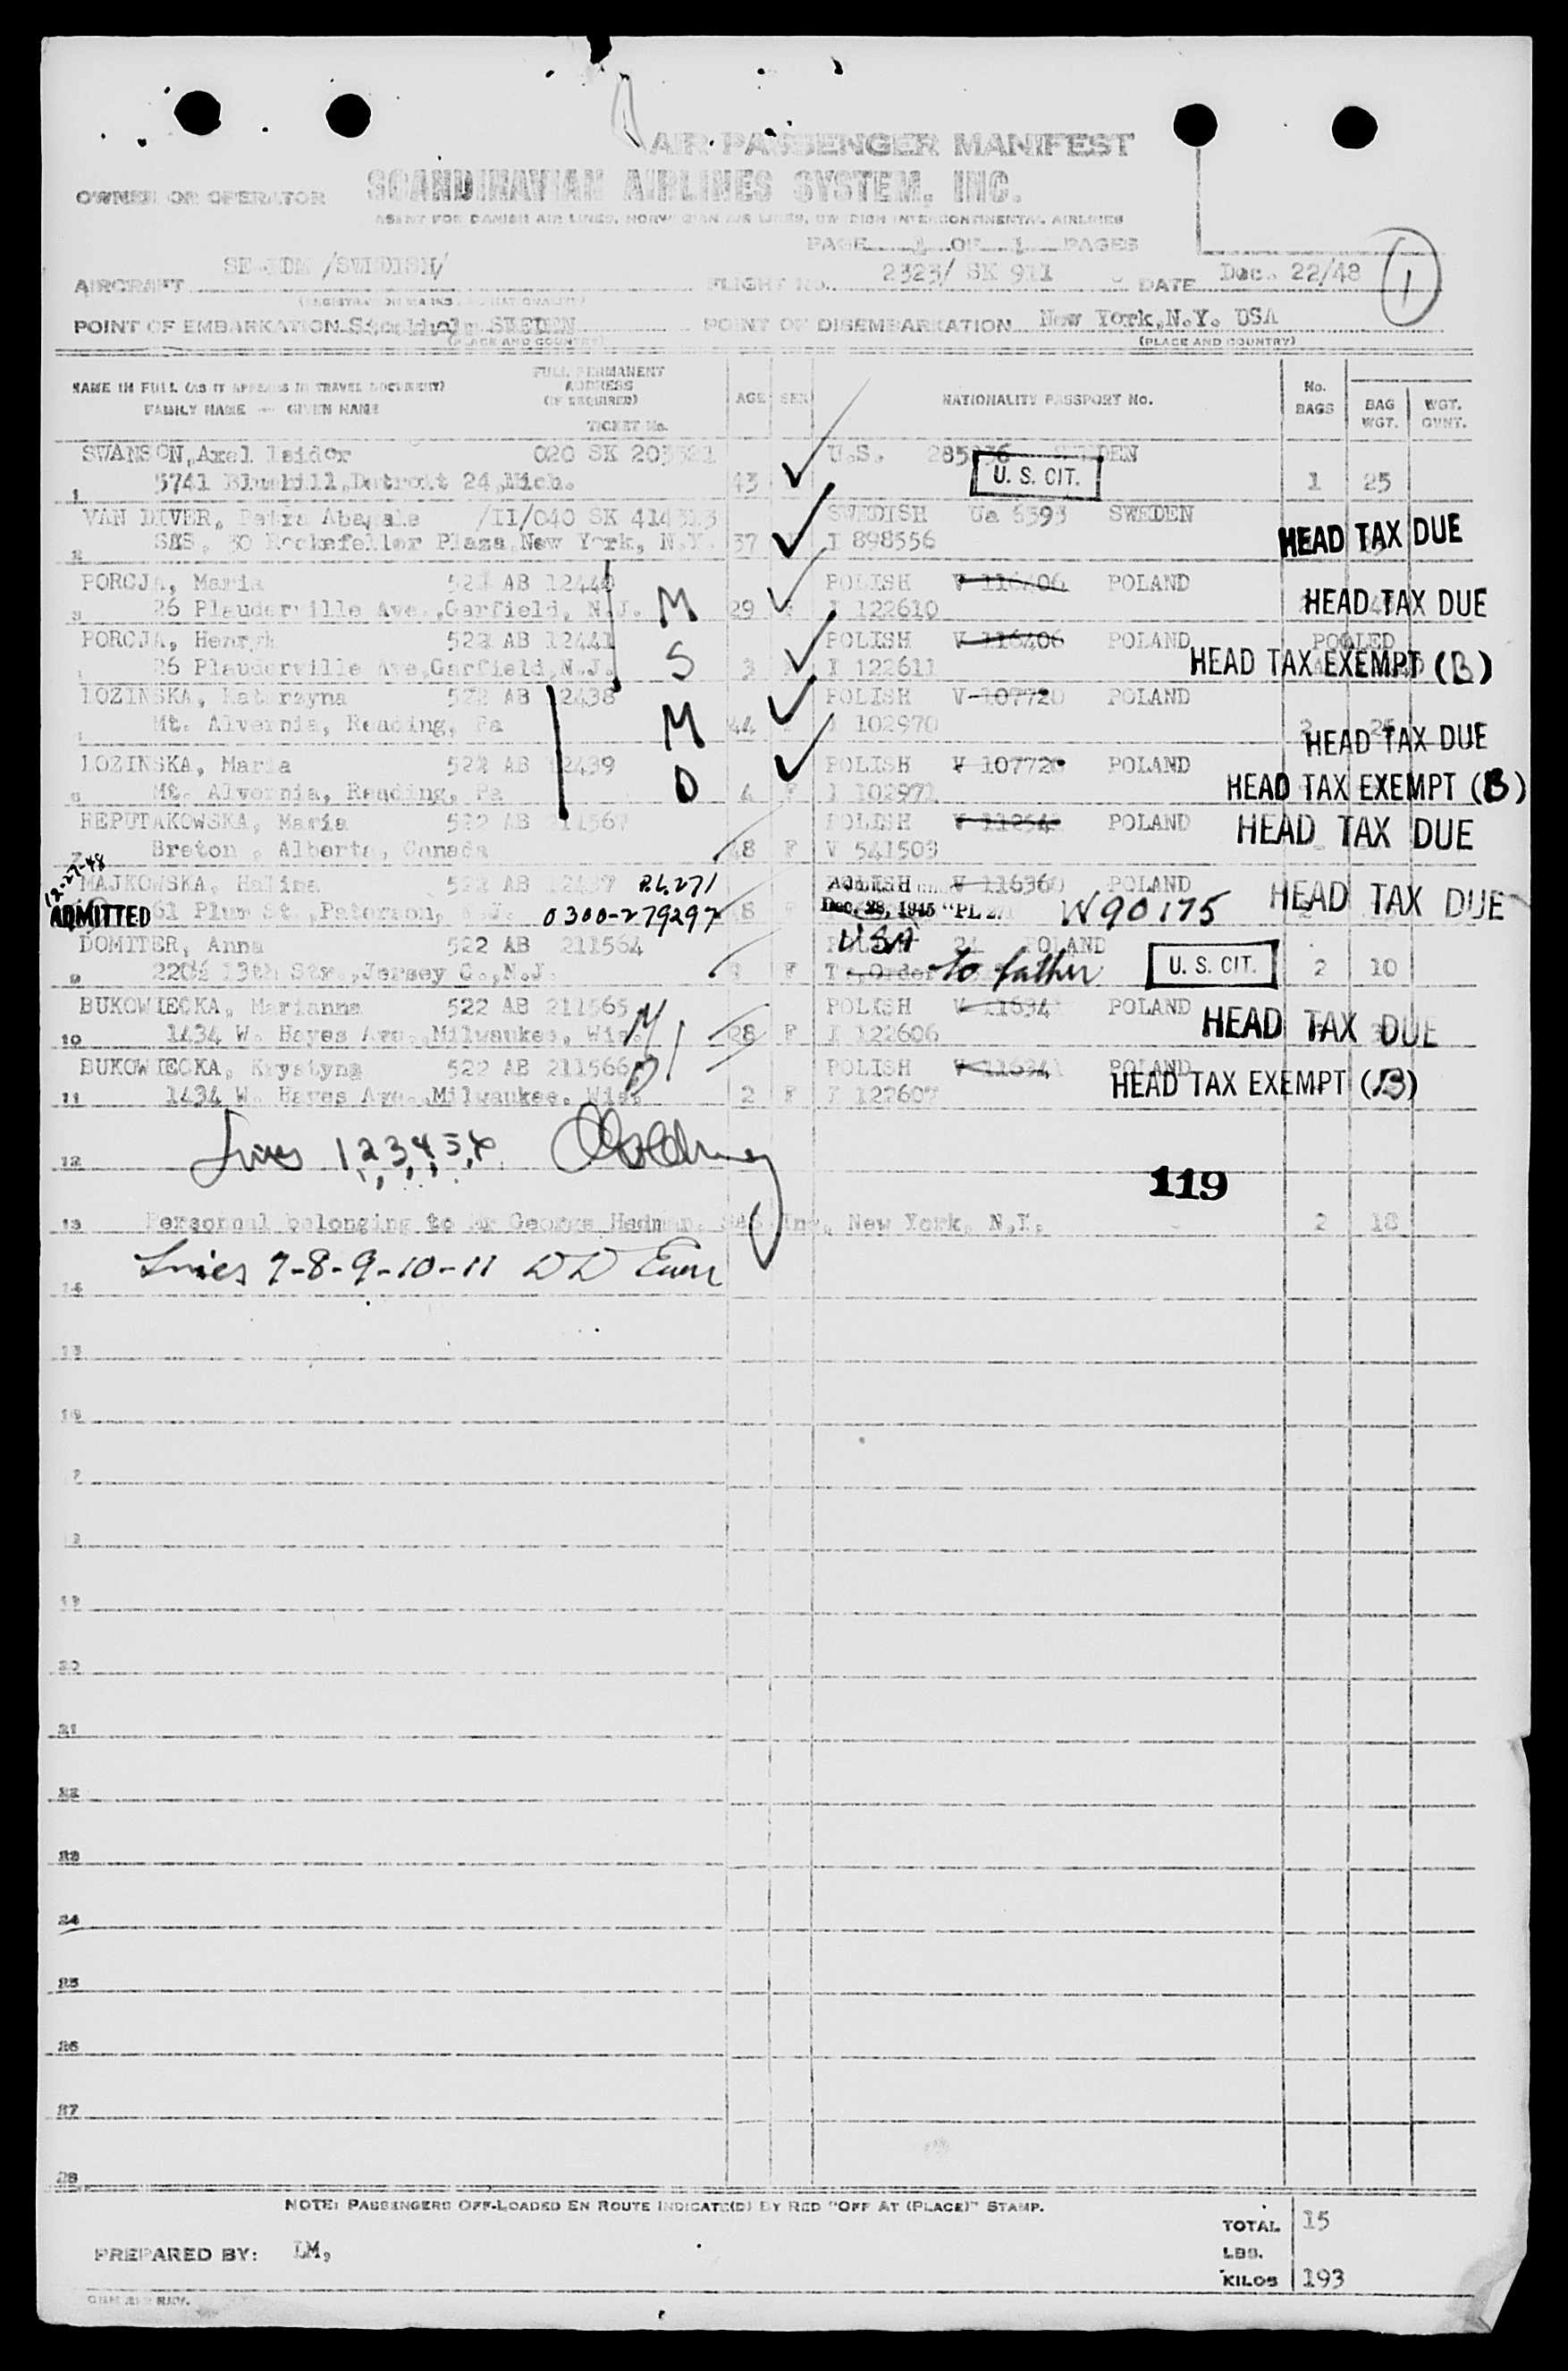 AIR PASSENGER MANIFEST
OWNER OR OPERATOR SCANDINAVIAN AIRLINES SYSTEM, INC.
AGENT FOR DANISH AIR LINES, NORWEGIAN AIR LINES, SWEDISH INTERCONTINENTAL AIRLINES
PAGE 1 OF 1 PAGES
AIRCRAFT /SWEDISH/ FLIGHT NO. 2323/ SK 911 DATE Dec. 22/48 1
(REGISTRATION MARKS AND NATIONALITY)
POINT OF EMBARKATION Stockholm SWEDEN POINT OF DISEMBARKATION New York,N.Y. USA
(PLACE AND COUNTRY) (PLACE AND COUNTRY)
NAME IN FULL (AS IT APPEARS IN TRAVEL DOCUMENT) FAMILY NAME — GIVEN NAME FULL PERMANENT ADDRESS (IF REQUIRED) TICKET No. AGE SEX NATIONALITY PASSPORT No. No. BAGS BAG WGT. WGT. GVNT.
SWANSON,Axel Isidor 020 SK U.S. SWEDEN
1 5741 Bluehill,Detroit 24,Mich. 43 U. S. CIT. 1 25
VAN DIVER, Petra /II/040 SK 414313 SWEDISH Ua 6393 SWEDEN
2 SAS, 30 Rockefeller Plaza,New York, N.Y. 37 I 898556 HEAD TAX DUE
POROJA, Maria 522 AB 12440 POLISH V 116406 POLAND
3 26 Plauderville Ave.,Garfield, N.J. M 29 I 122610 HEAD TAX DUE
POROJA, Henryk 522 AB 12441 POLISH V 116406 POLAND POOLED
26 Plauderville Ave,Garfield,N.J. S 3 I 122611 HEAD TAX EXEMPT (B)
LOZINSKA, Katarzyna 522 AB 12438 POLISH V 107720 POLAND
Mt. Alvernia, Reading, Pa M 44 I 102970 HEAD TAX DUE
LOZINSKA, Maria 522 AB 12439 POLISH V 107720 POLAND
6 Mt. Alvernia, Reading, Pa D 4 F I 102971 HEAD TAX EXEMPT (B)
REPUTAKOWSKA, Maria 522 AB 211567 POLISH POLAND
7 Breton, Alberta, Canada 48 F V 541503 HEAD TAX DUE
12-27-48 MAJKOWSKA, Halina 522 AB 12437 PL271 POLISH V 116360 POLAND
ADMITTED 61 Plum St.,Paterson, N.J. 0300-279297 Dec. 28, 1945 "PL 271 W90175 HEAD TAX DUE
DOMITER, Anna 522 AB 211564 USA POLAND
9 220½ 13th Str.,Jersey C.,N.J. F to father U. S. CIT. 2 10
BUKOWIECKA, Marianna 522 AB 211565 M POLISH POLAND
10 1434 W. Hayes Ave.,Milwaukee, Wis. 28 F I 122606 HEAD TAX DUE
BUKOWIECKA, Krystyna 522 AB 211566 D POLISH V 116341 POLAND
11 1434 W. Hayes Ave.,Milwaukee. Wis. 2 F I 122607 HEAD TAX EXEMPT (B)
12 Lines 1,2,3,4,5,6
119
13 Personnal belonging to Mr George Hedman, SAS Inc, New York, N.Y. 2 18
Lines 7-8-9-10-11
14
15
16
17
18
19
20
21
22
23
24
25
26
27
28
NOTE: PASSENGERS OFF-LOADED EN ROUTE INDICATE(D) BY RED "OFF AT (PLACE)" STAMP.
TOTAL 15
PREPARED BY: LM, LBS.
KILOS 193